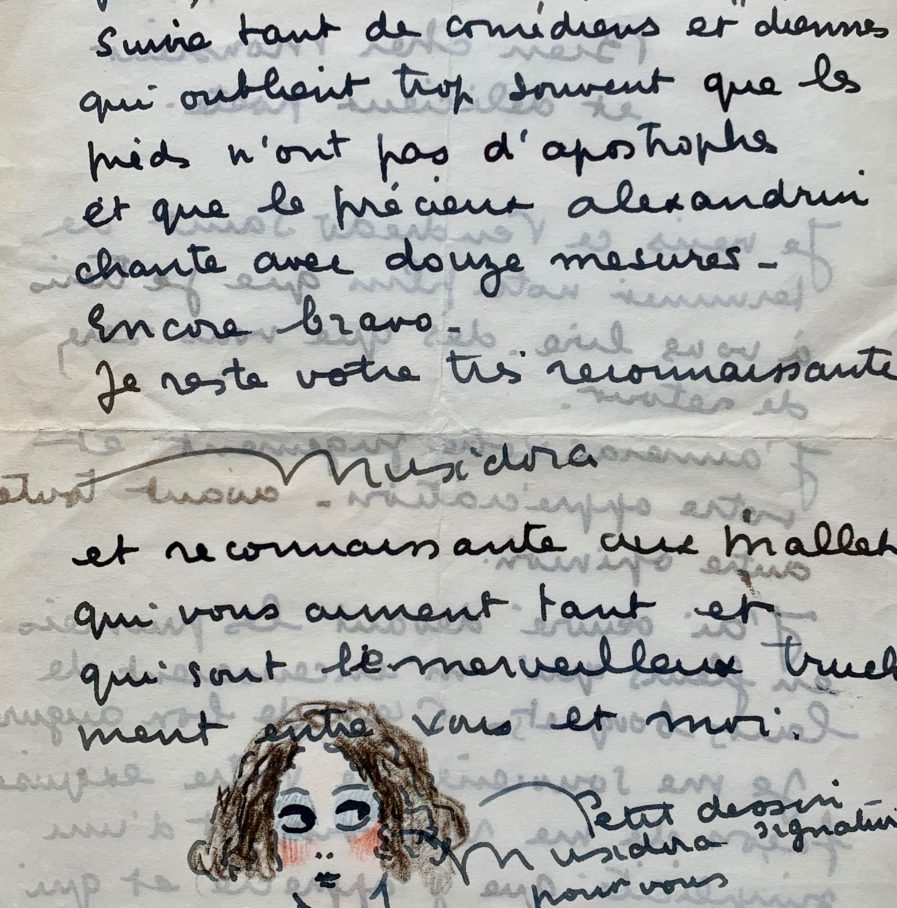 suivre tant de comédiens et diennes
qui oublient trop souvent que les
pieds n'ont pas d'apostrophe
et que le précieux alexandrin
chante avec douze mesures -
Encore bravo -
Je reste votre très reconnaissante
Musidora
et reconnaissante aux Mallet
qui vous aiment tant et
qui sont le merveilleux truch
ment entre vous et moi.
Petit dessin
Musidora signature
pour vous